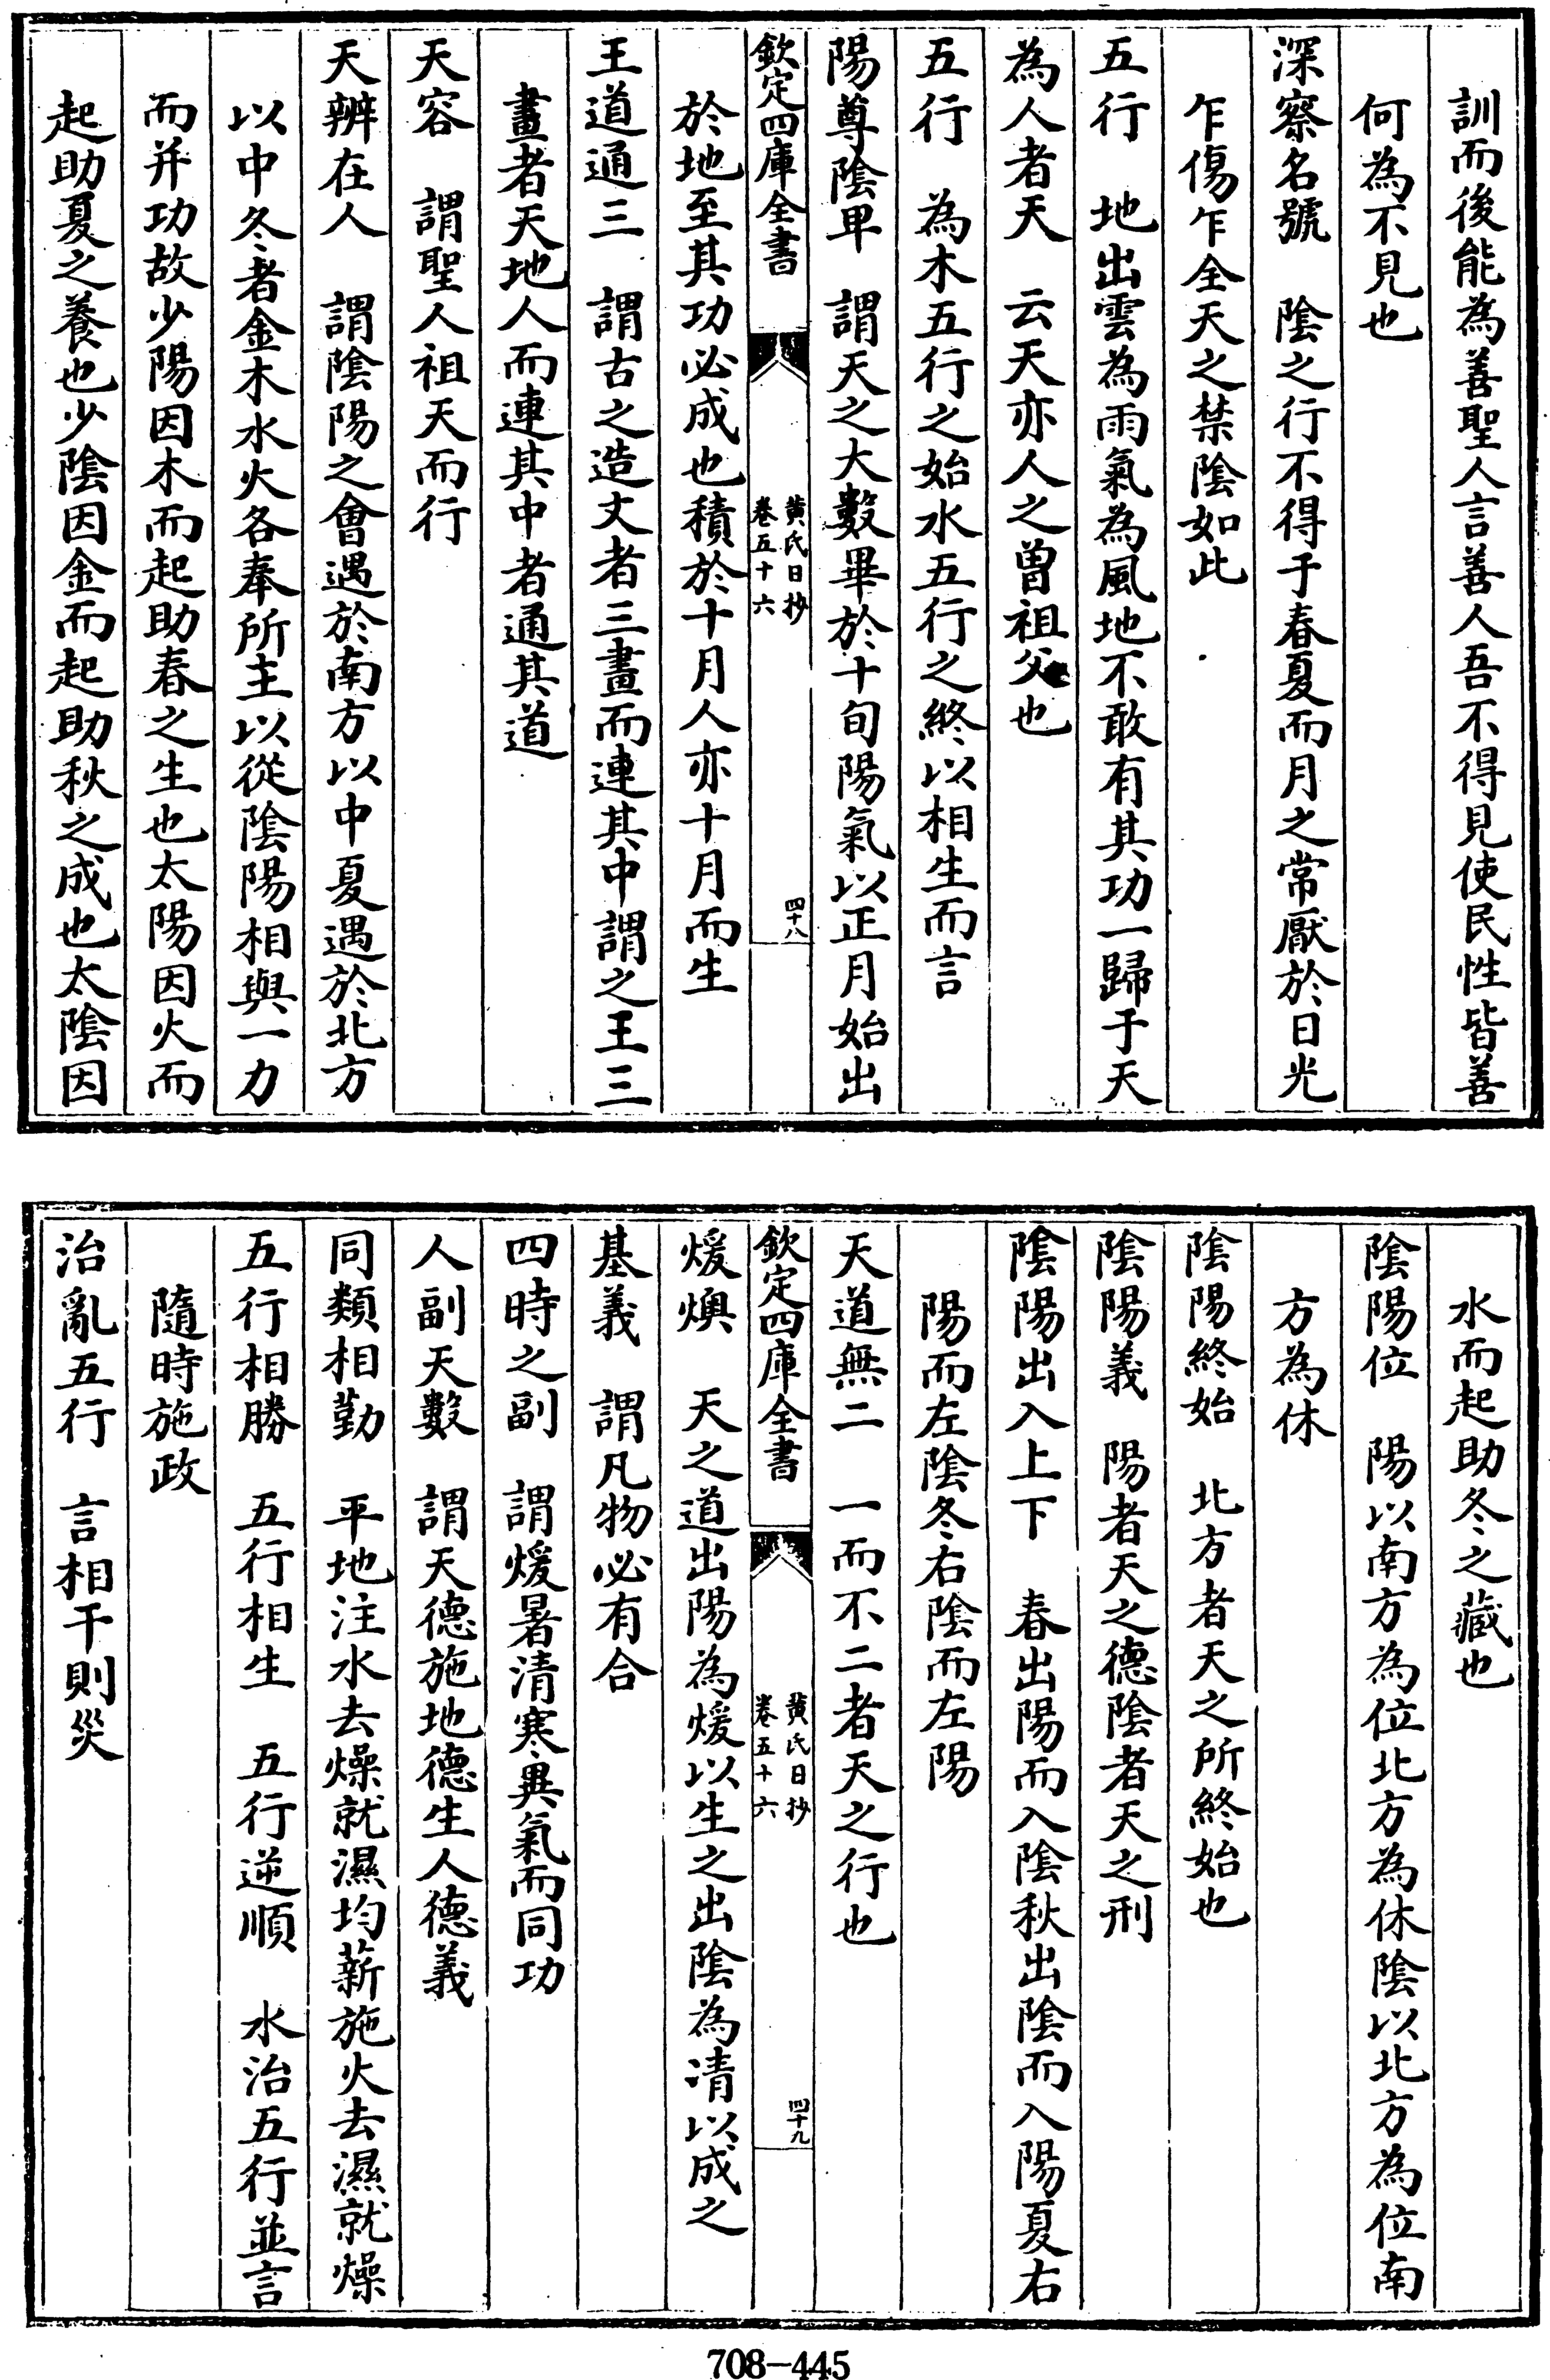 訓而後能為善聖人言善人吾不得見使民性皆善
何為不見也
深察名號　陰之行不得于春夏而月之常厭於日光
乍傷乍全天之禁陰如此
五行　地出雲為雨氣為風地不敢有其功一歸于天
為人者天　云天亦人之曾祖父也
五行　為木五行之始水五行之終以相生而言
陽尊陰卑　謂天之大數畢於十旬陽氣以正月始出
欽定四庫全書
黃氏日抄
卷五十六
四十八
於地至其功必成也積於十月人亦十月而生
王道通三　謂古之造文者三畫而連其中謂之王三
畫者天地人而連其中者通其道
天容　謂聖人祖天而行
天辨在人　謂陰陽之會遇於南方以中夏遇於北方
以中冬者金木水火各奉所主以從陰陽相與一力
而并功故少陽因木而起助春之生也太陽因火而
起助夏之養也少陰因金而起助秋之成也太陰因
水而起助冬之藏也
陰陽位　陽以南方為位北方為休陰以北方為位南
方為休
陰陽終始　北方者天之所終始也
陰陽義　陽者天之德陰者天之刑
陰陽出入上下　春出陽而入陰秋出陰而入陽夏右
陽而左陰冬右陰而左陽
天道無二　一而不二者天之行也
欽定四庫全書
黃氏日抄
卷五十六
四十九
煖燠　天之道出陽為煖以生之出陰為清以成之
基義　謂凡物必有合
四時之副　謂煖暑清寒異氣而同功
人副天數　謂天德施地德生人德義
同類相動　平地注水去燥就濕均薪施火去濕就燥
五行相勝　五行相生　五行逆順　水治五行並言
隨時施政
治亂五行　言相干則災
708-445